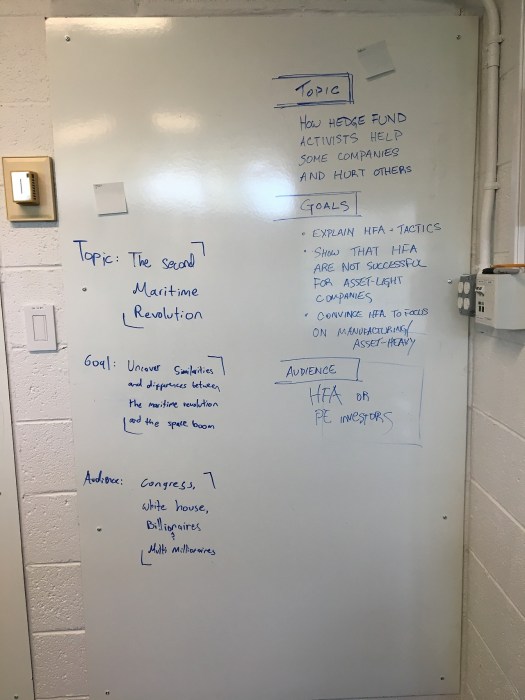 Topic: The second
Maritime
Revolution
Goal: Uncover Similarities
and differences between
the maritime revolution
and the space boom
Audience: Congress,
white house,
Billionaires
&
Multi Millionaires
TOPIC
HOW HEDGE FUND
ACTIVISTS HELP
SOME COMPANIES
AND HURT OTHERS
GOALS
• EXPLAIN HFA - TACTICS
• SHOW THAT HFA
ARE NOT SUCCESSFUL
FOR ASSET-LIGHT
COMPANIES
• CONVINCE HFA TO FOCUS
ON MANUFACTURING/
ASSET-HEAVY
AUDIENCE
HFA OR
PE INVESTORS